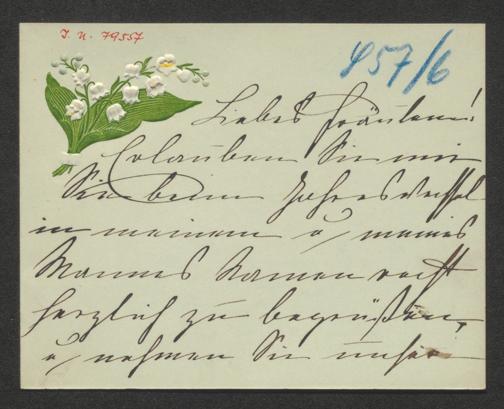 I. N. 79557
457/6
Liebes Fräulein!
Erlauben Sie mir
Sie beim Jahreswechsel
in meinem u meines
Mannes Namen recht
herzlich zu begrüßen,
u nehmen Sie unser